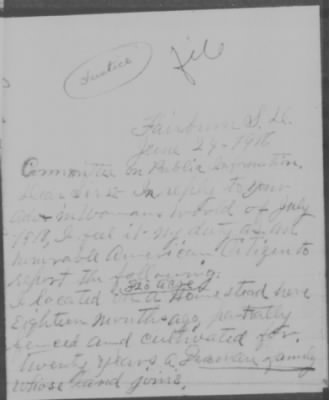 Justice
file
Fairburn S. D.
June 29-1918
Committee on Public Information.
Dear sirs in reply to your
adv in Womans World of July
1918, I feel it my duty as an
honorable American Citizen to
report the following:
320 acre
I located on a Homestead here
Eighteen Months ago, partially
fenced and cultivated for
twenty years a family
whose land joins.